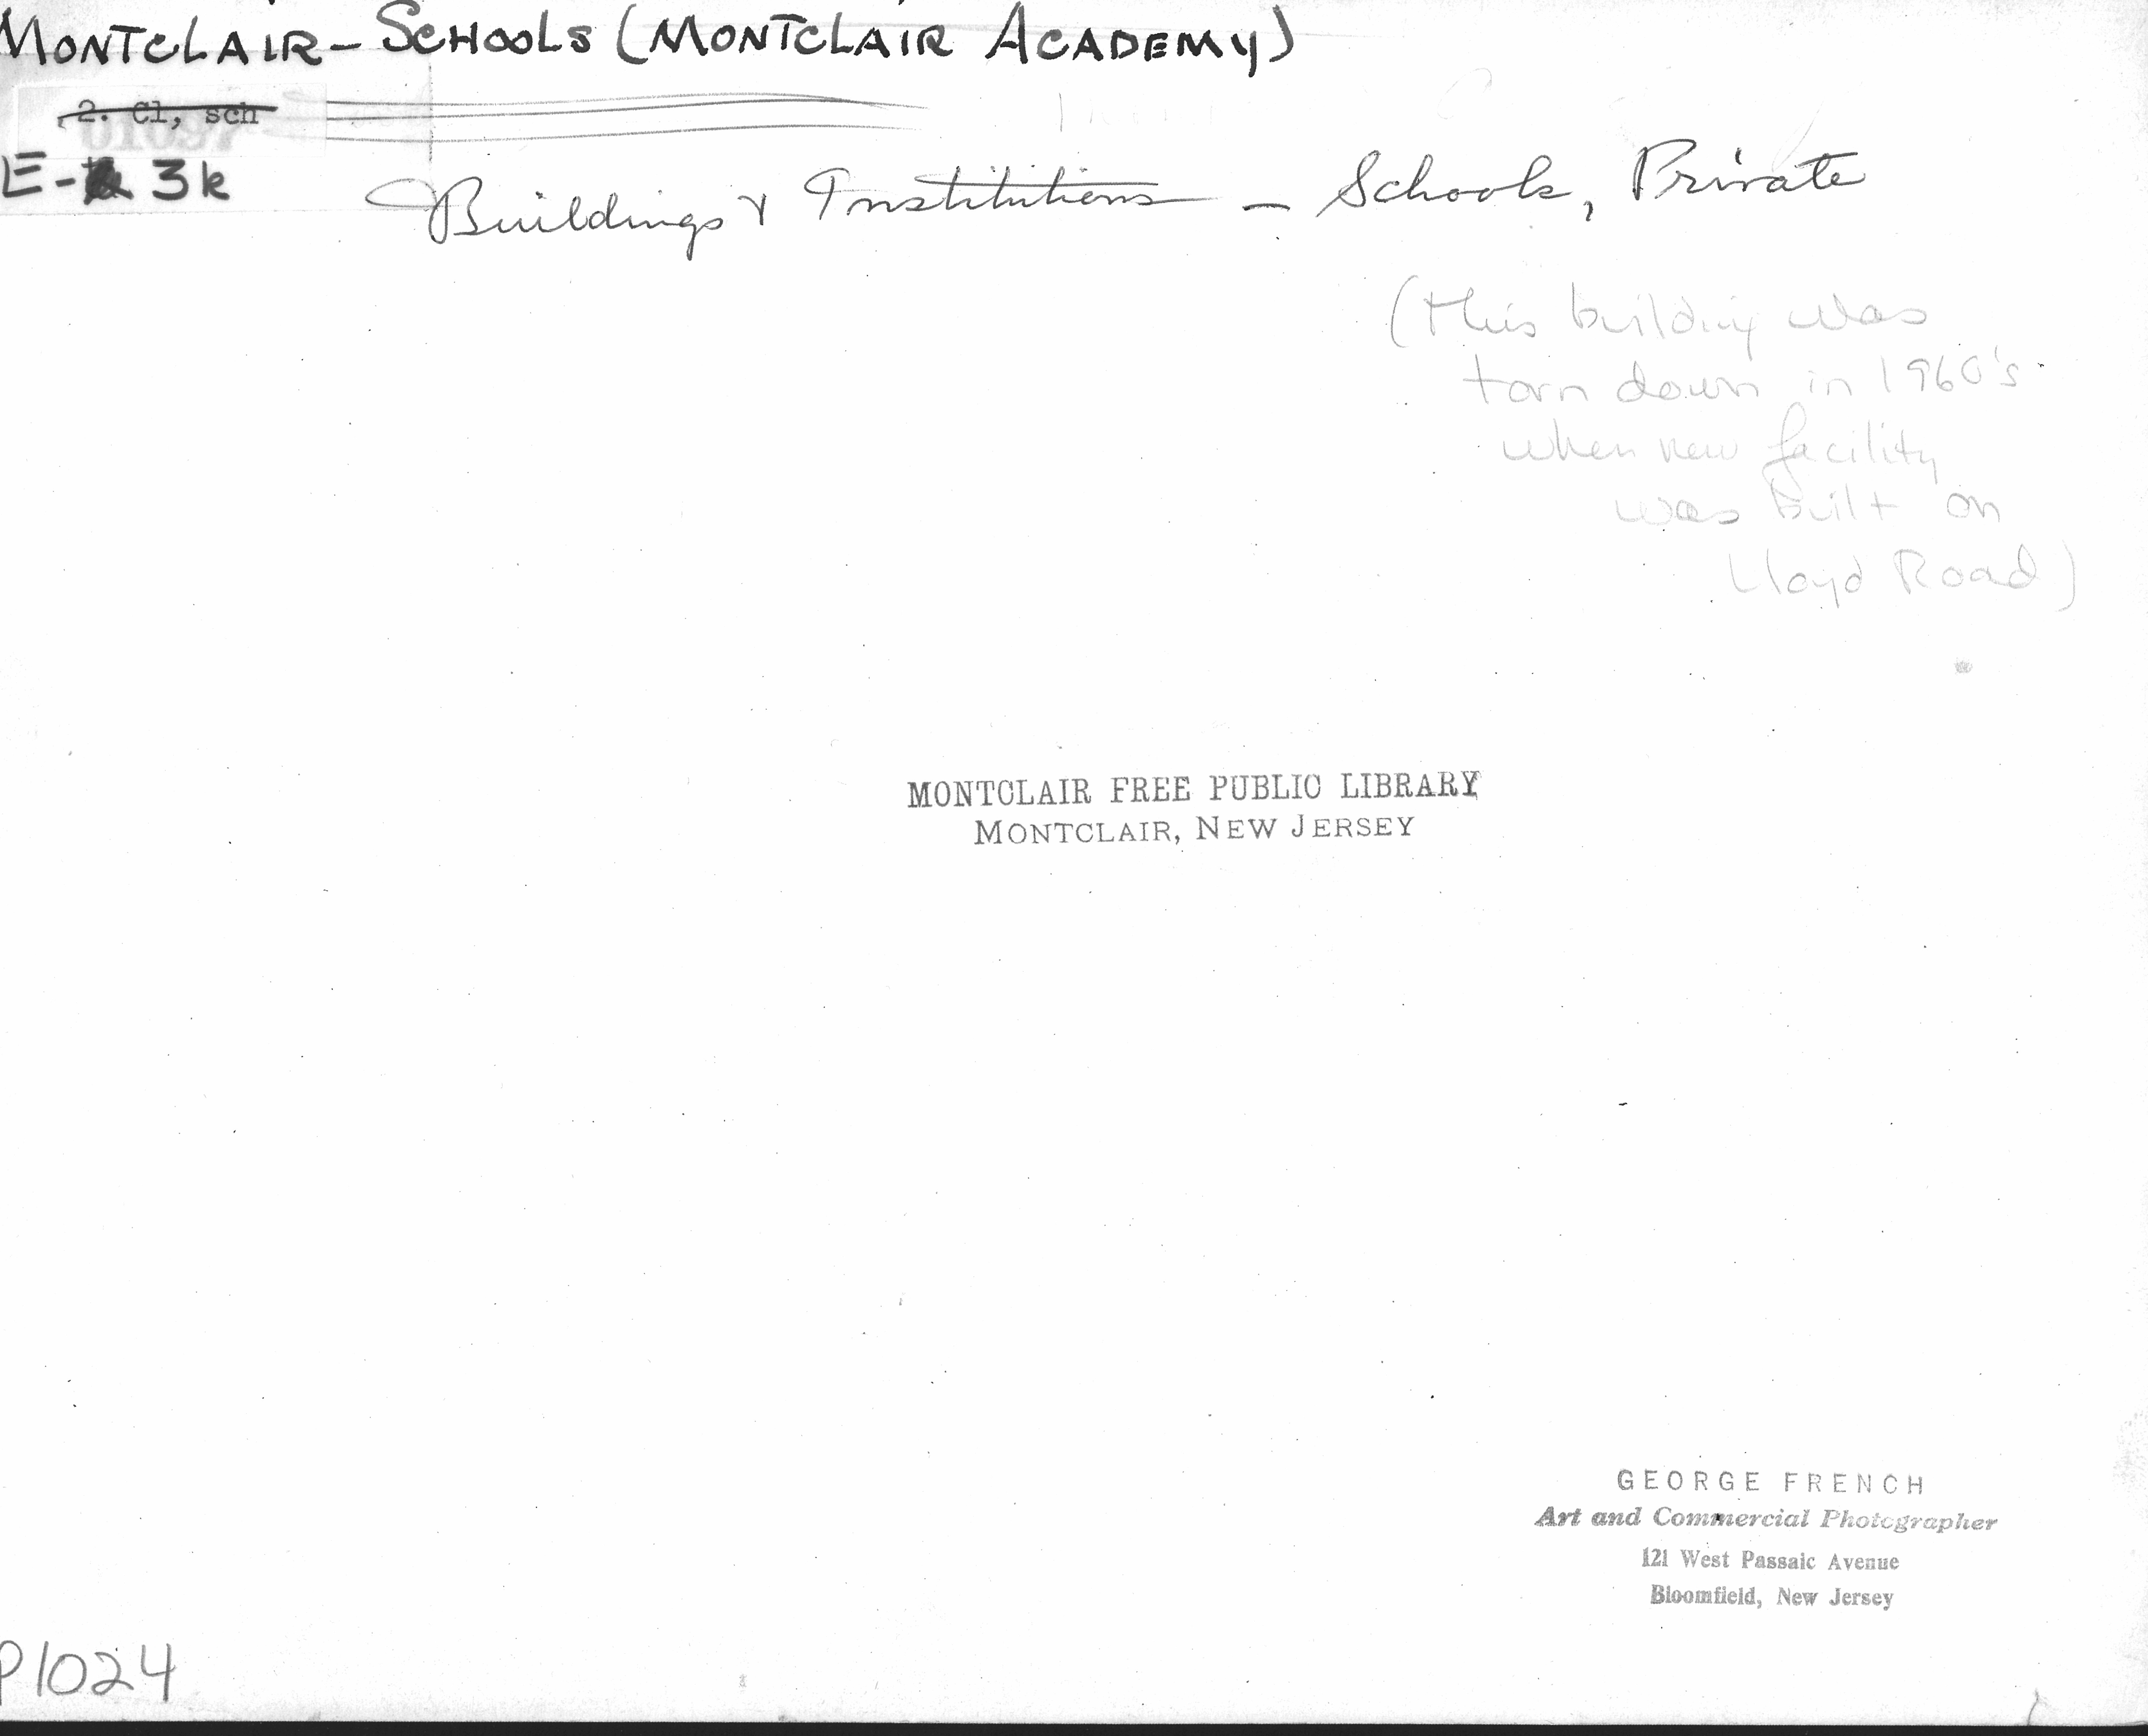 MONTCLAIR – SCHOOLS (MONTCLAIR ACADEMY)
2. Cl, sch
01097
E- 3k
Buildings & Institutions – Schools, Private
(this building was
torn down in 1960's
when new facility
was built on
Lloyd Road)
MONTCLAIR FREE PUBLIC LIBRARY
MONTCLAIR, NEW JERSEY
GEORGE FRENCH
Art and Commercial Photographer
121 West Passaic Avenue
Bloomfield, New Jersey
P1024